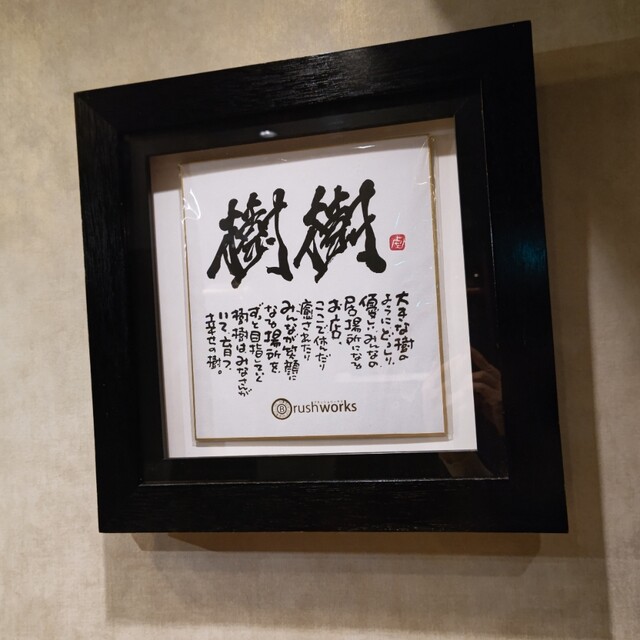 樹樹
大きな樹の
ように、どっしり
優しい、みんなの
居場所になる
お店。
ここで休んだり
癒されたり
みんなが笑顔に
なる場所を、
ずっと目指していく
樹樹は、みなさんが
いて、育つ、
幸せの樹。
Brushworks